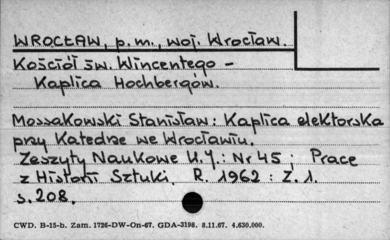 WROCŁAW, p.m., woj. Wrocław.
Kościół św. Wincentego –
Kaplica Hochbergów.
Mossakowski Stanisław: Kaplica elektorska
przy Katedrze we Wrocławiu.
Zeszyty Naukowe U.J.: Nr 45; Prace
z Historii Sztuki. R. 1962: Z. 1.
s. 208.
CWD. B-15-b. Zam. 1726-DW-On-67. GDA-3198. 8.11.67. 4.630.000.